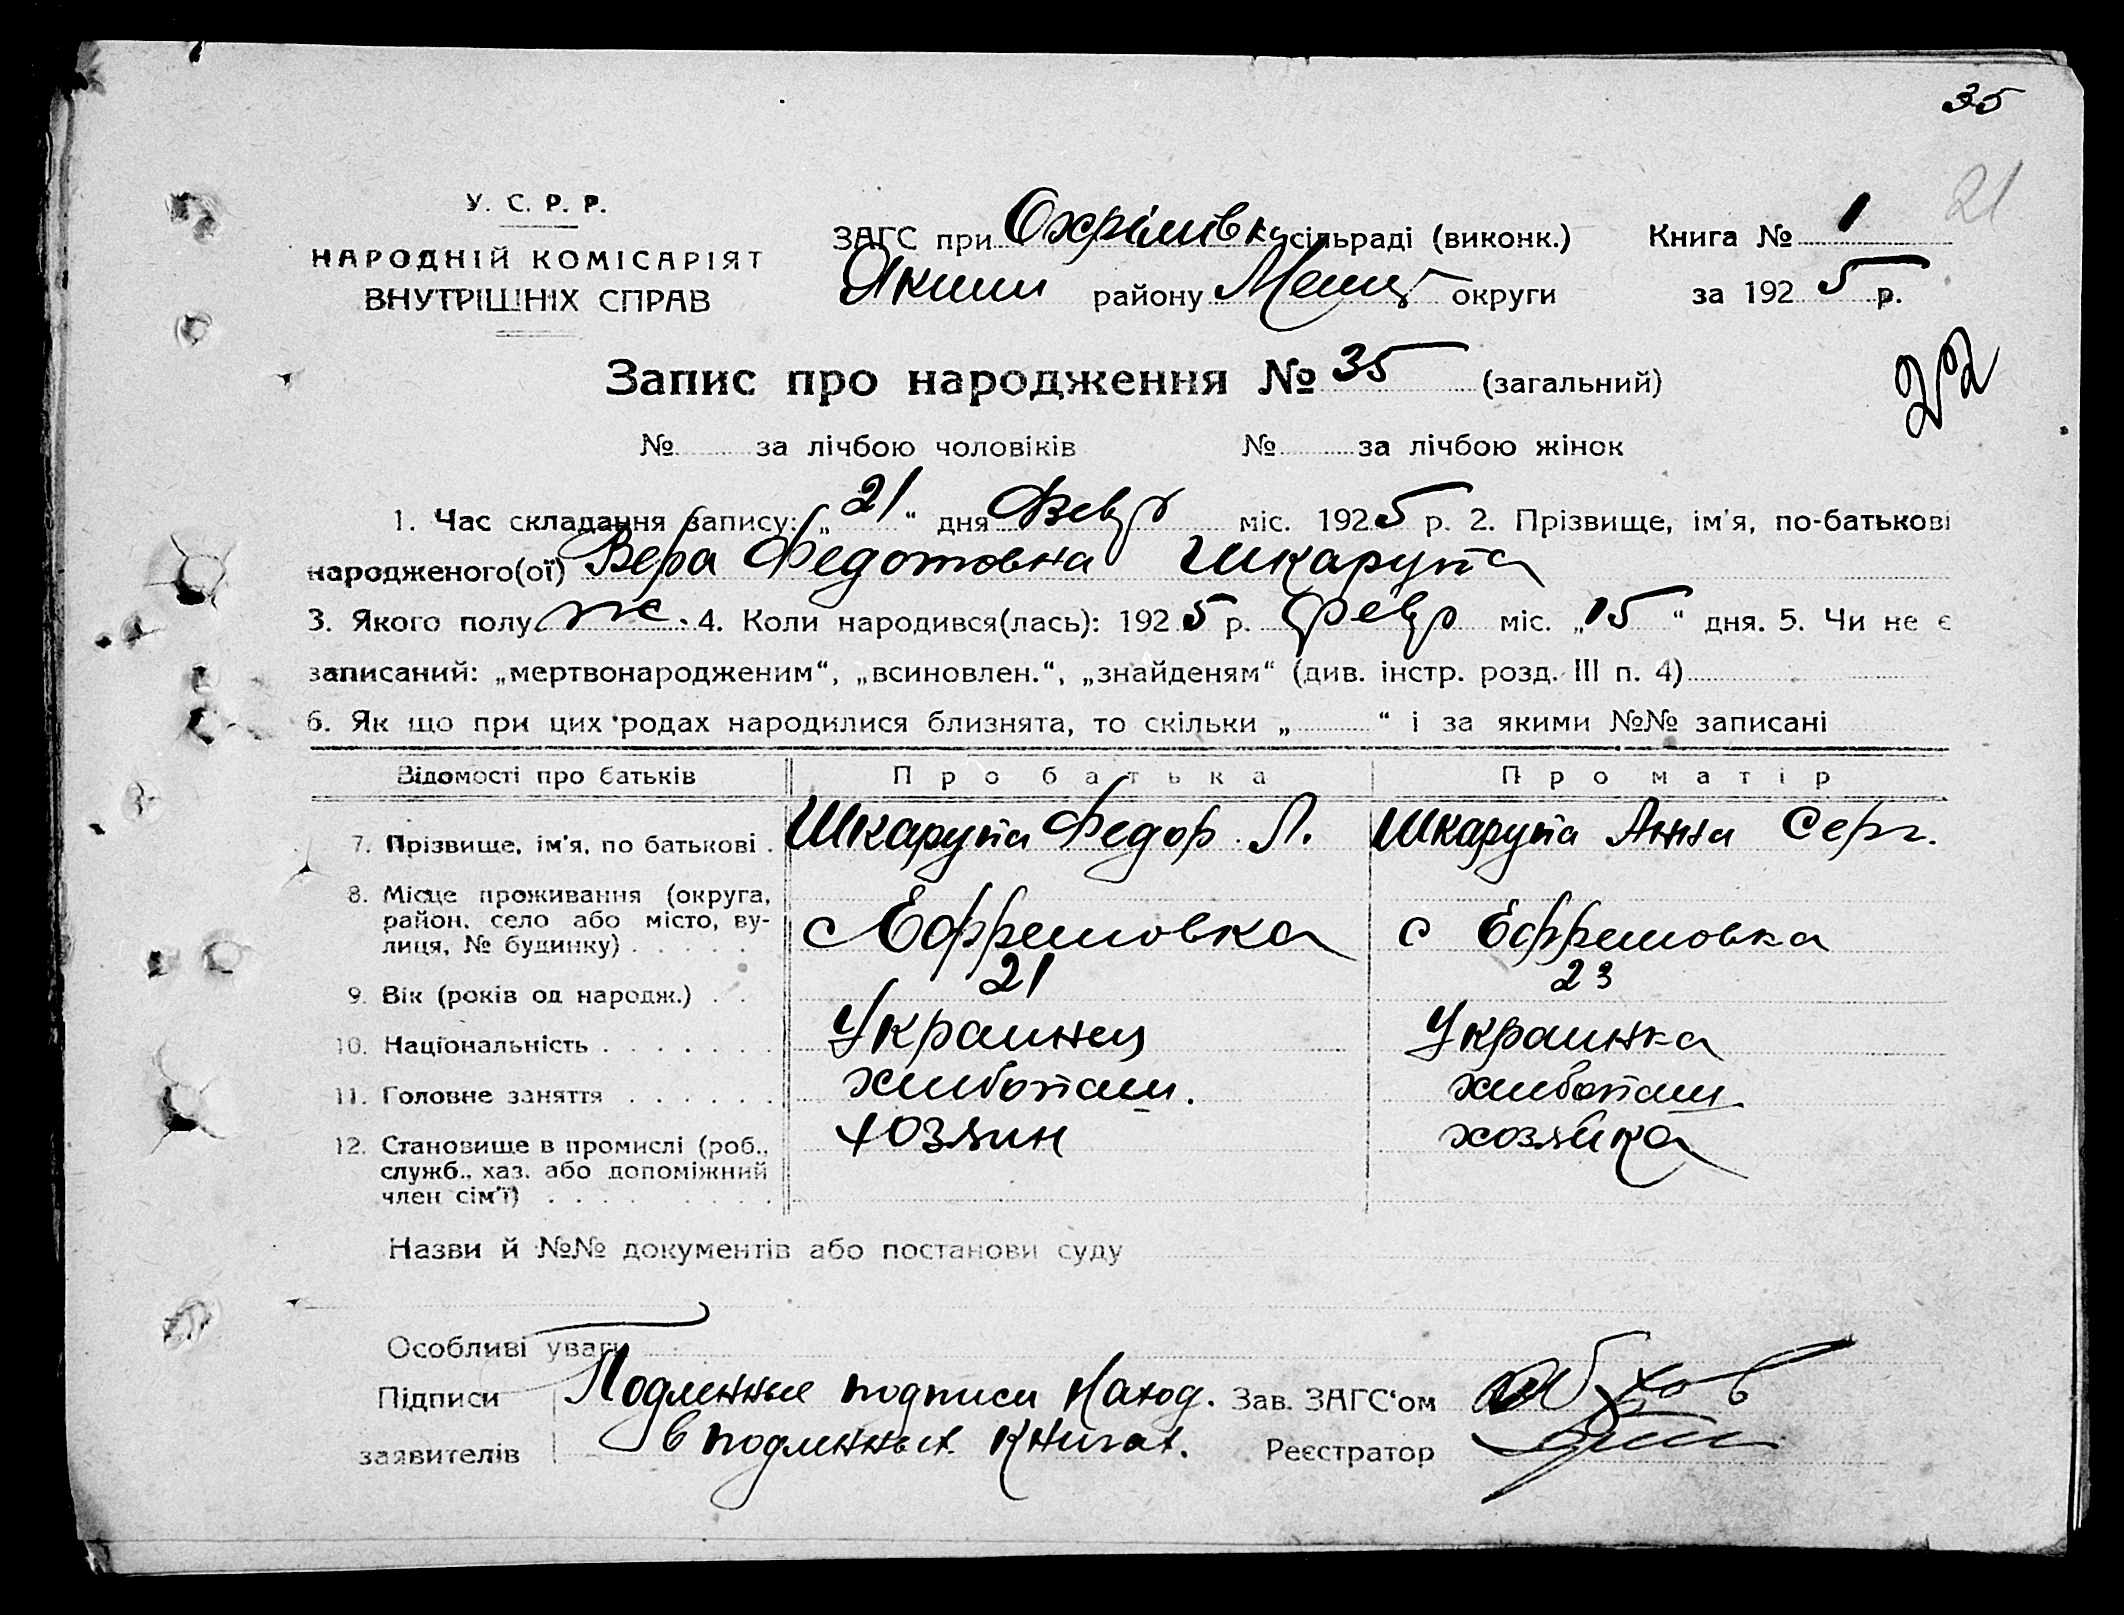 35
21
У. С. Р. Р.
НАРОДНІЙ КОМІСАРІЯТ
ВНУТРІШНІХ СПРАВ
ЗАГС при Охрімівк сільраді (виконк.) Книга № 1
Якими району Меліт округи за 192 5 р.
Запис про народження № 35 (загальний)
22
№ за лічбою чоловіків № за лічбою жінок
1. Час складання запису: „ 21 “ дня Февр міс. 192 5 р. 2. Прізвище, ім'я, по-батькові
народженого(ої) Вера Федотовна Шкарупа
3. Якого полу ж. 4. Коли народився(лась): 192 5 р. февр міс. „ 15 “ дня. 5. Чи не є
записаний: „мертвонародженим“, „всиновлен.“, „знайденям“ (див. інстр. розд. III п. 4)
6. Як що при цих родах народилися близнята, то скільки „ “ і за якими №№ записані
Відомості про батьків Про батька Про матір
7. Прізвище, ім'я, по батькові . Шкарупа Федор Л. Шкарупа Анна Серг.
8. Місце проживання (округа,
район, село або місто, ву-
лиця, № будинку) . . . . . с Ефремовка с Ефремовка
9. Вік (років од народж.) . . 21 23
10. Національність . . . . . . . Украинец Украинка
11. Головне заняття . . . . . . хлибопаш. хлибопаш
12. Становище в промислі (роб., хозяин хозяйка
служб., хаз. або допоміжний
член сім'ї) . . . . . . . . .
Назви й №№ документів або постанови суду
Особливі уваги
Підписи Подленные подписи наход. Зав. ЗАГС'ом
заявителів в подленных книгах. Реєстратор